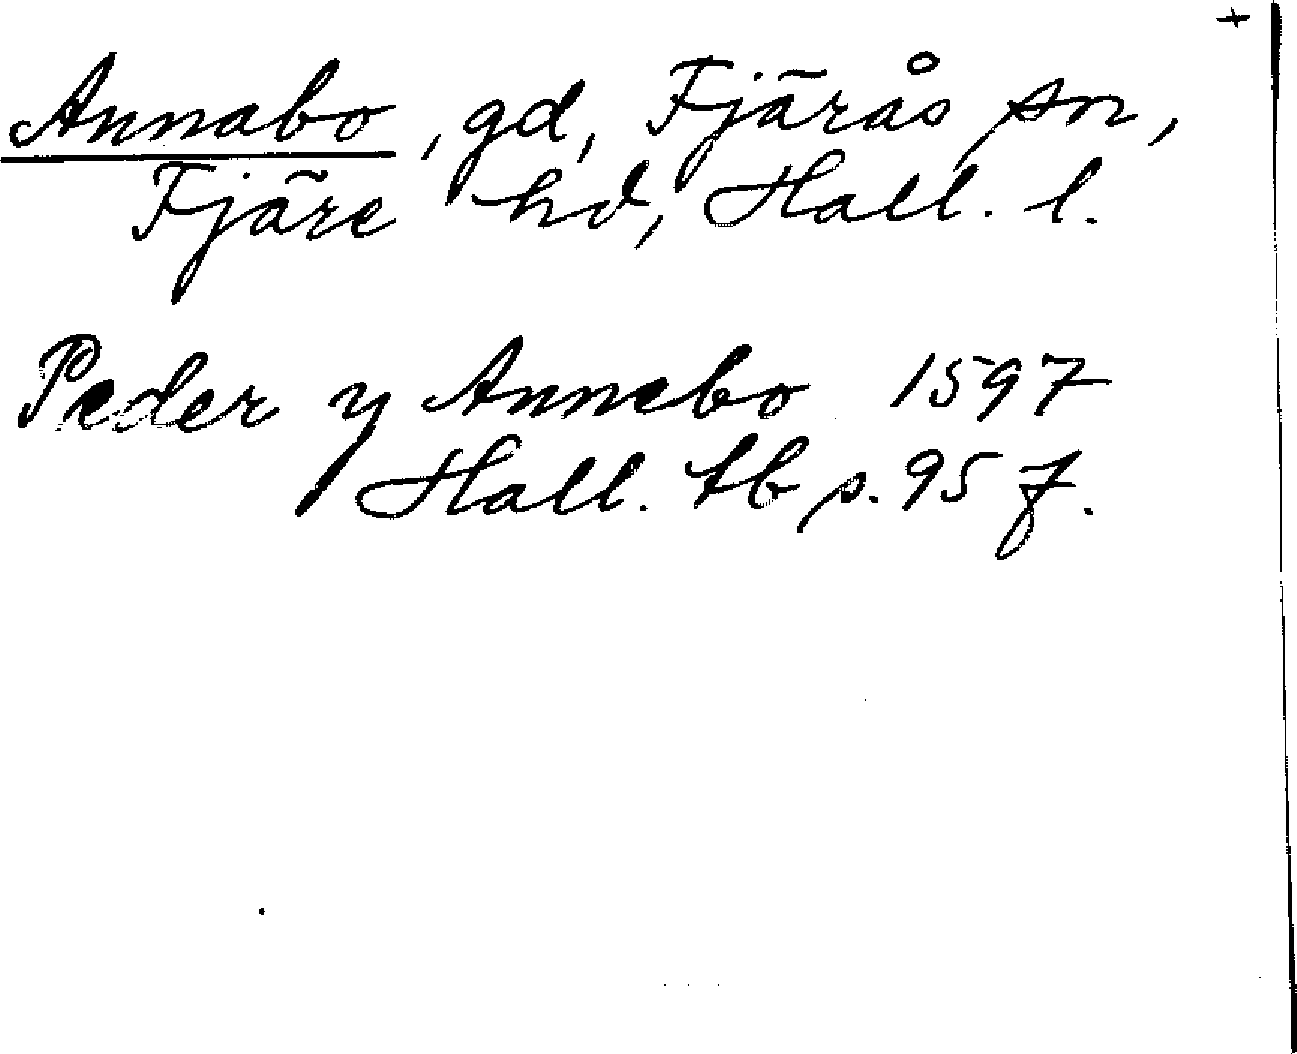 +
Annabo, gd, Fjärås sn,
Fjäre hd, Hall. l.
Peder y Annebo 1597
Hall. tb s. 95 f.